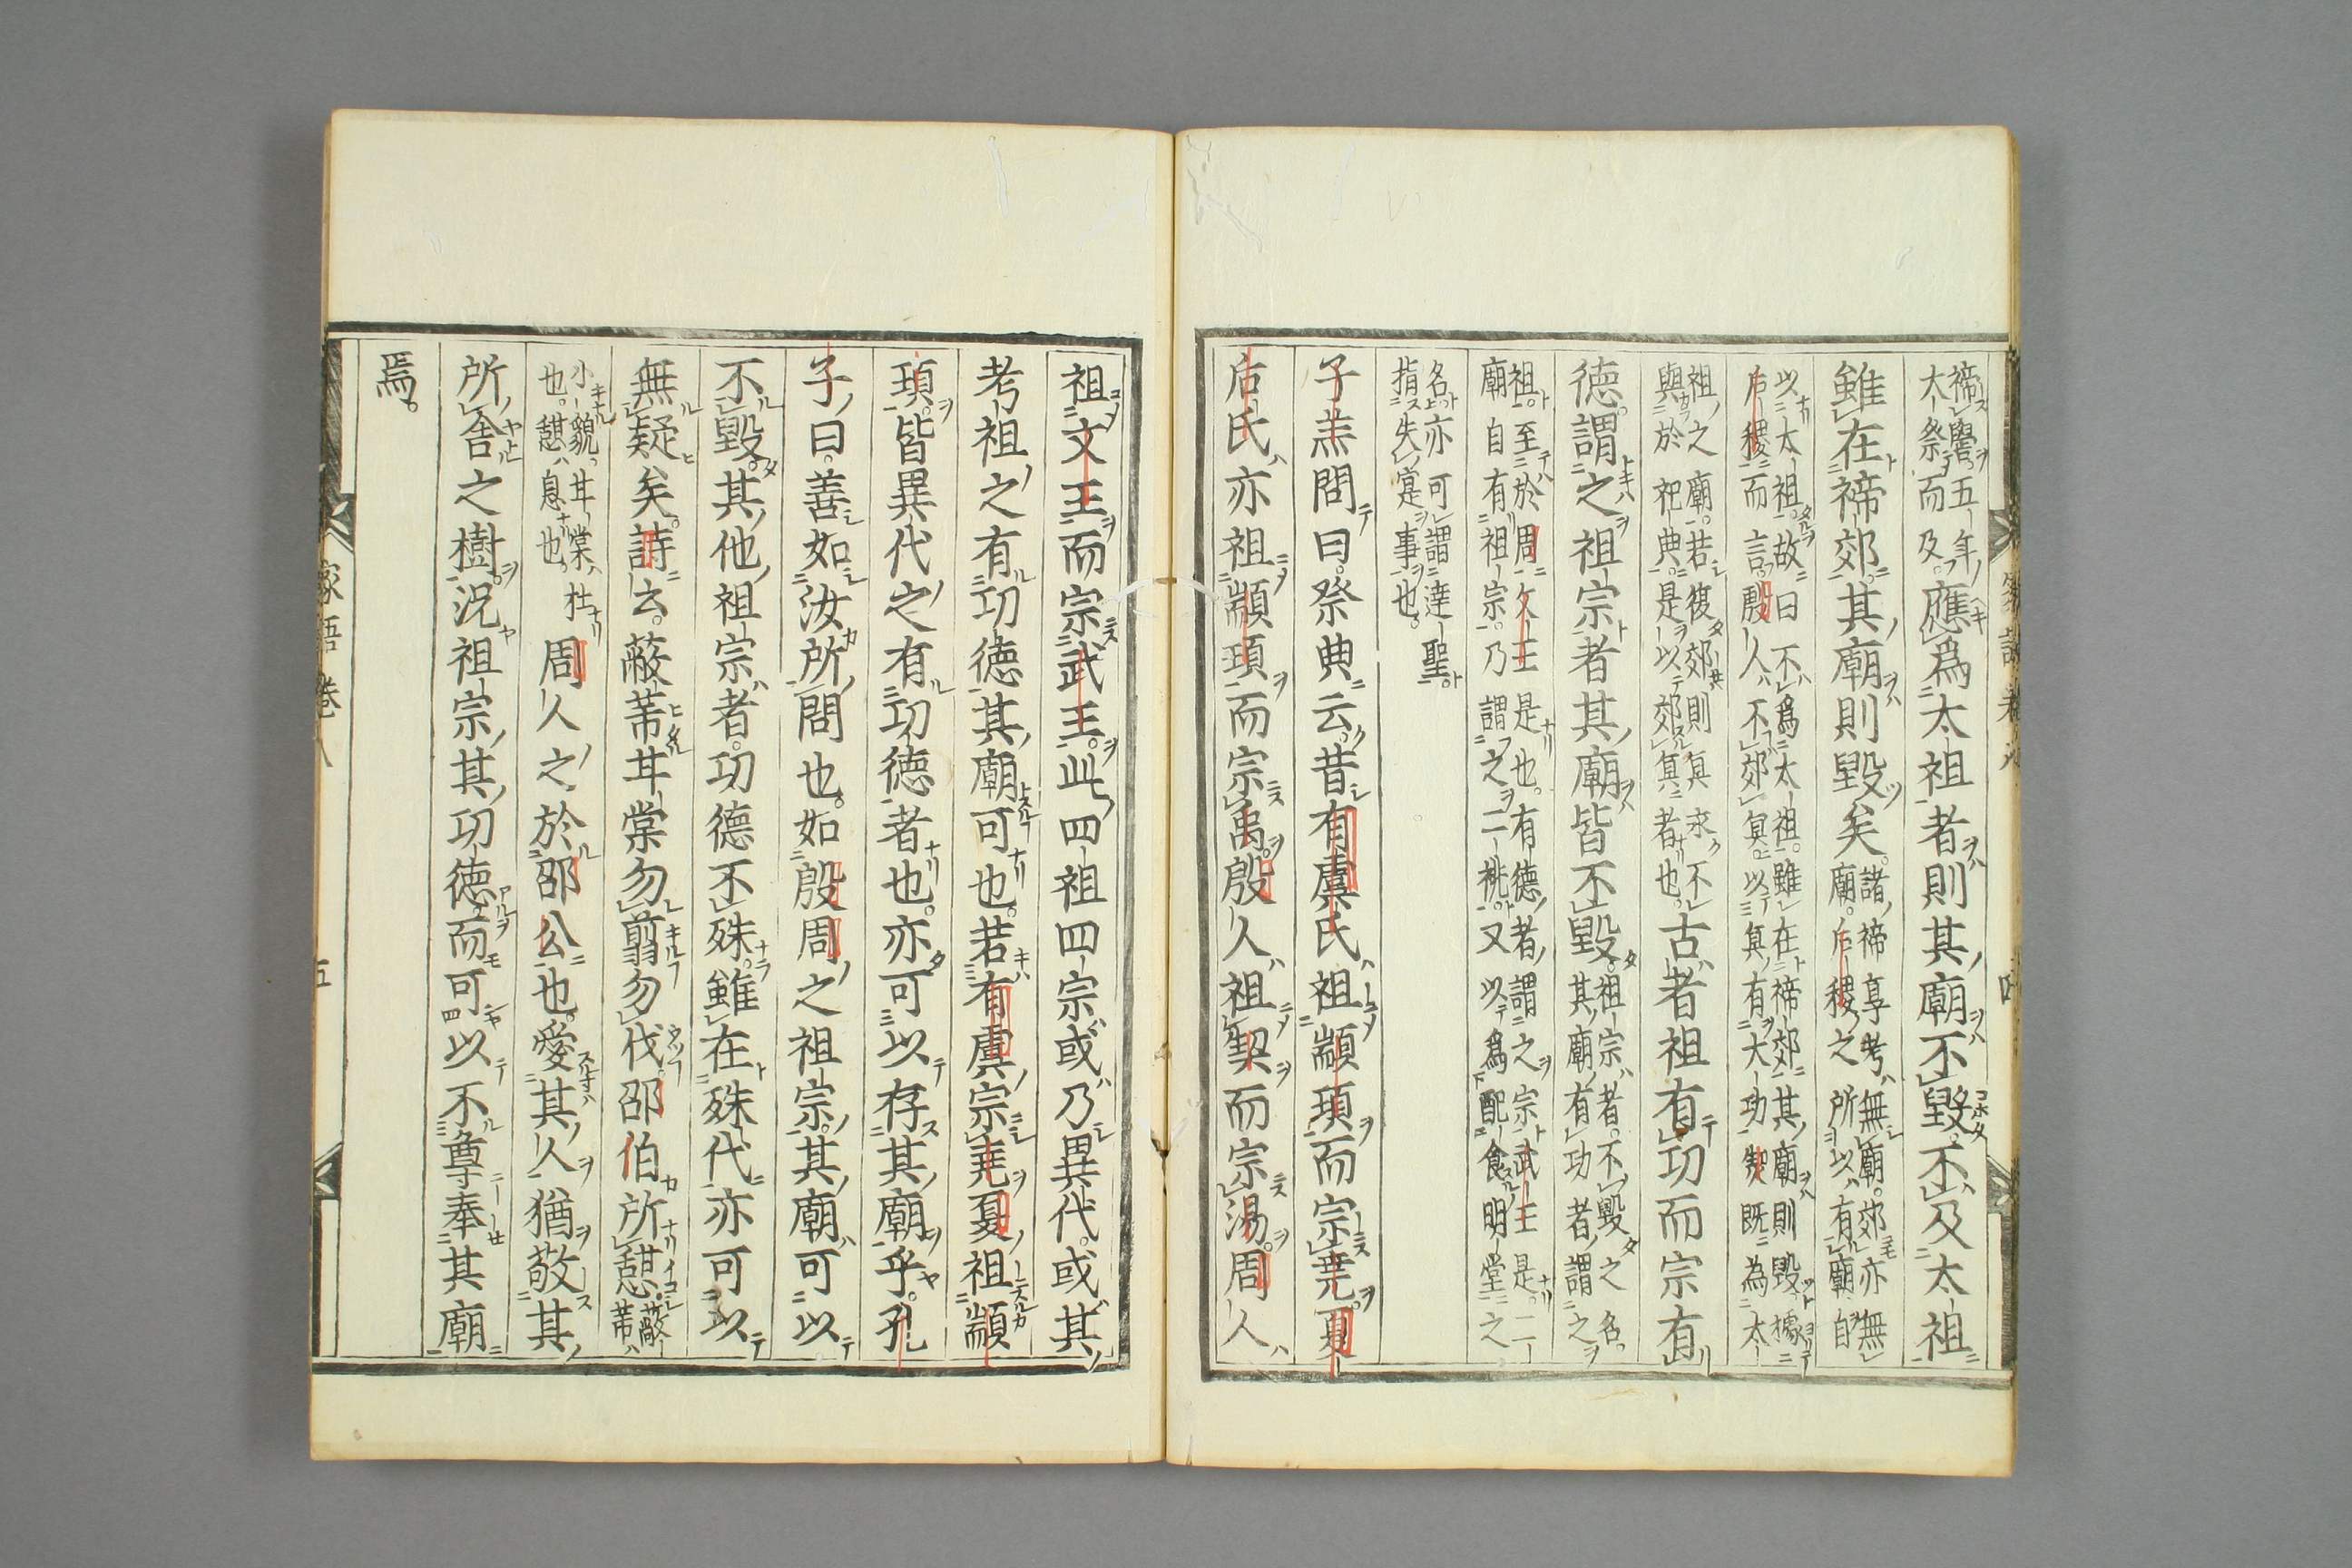 禘嚳五年
大祭而及應爲太祖者則其廟不毀不及太祖
雖在禘郊其廟則毀矣諸禘享考無廟郊亦無
廟后稷之所以有廟自
以太祖故曰不爲太祖雖在禘郊其廟則毀據
后稷而言殷人不郊冥以冥有大功契既為太
祖之廟若復郊則冥永不
與於祀典是以郊冥者也古者祖有功而宗有
德謂之祖宗者其廟皆不毀祖宗者不毀之名
其廟有功者謂之
祖至於周文王是也有德者謂之宗武王是二
廟自有祖宗乃謂之二祧又以爲配食明堂之
名亦可謂達聖
指失寔事也
子羔問曰祭典云昔有虞氏祖顓頊而宗堯夏
后氏亦祖顓頊而宗禹殷人祖契而宗湯周人
祖文王而宗武王此四祖四宗或乃異代或其
考祖之有功德其廟可也若有虞宗堯夏祖顓
頊皆異代之有功德者也亦可以存其廟乎孔
子曰善如汝所問也如殷周之祖宗其廟可以
不毀其他祖宗者功德不殊雖在殊代亦可以
無疑矣詩云蔽芾甘棠勿翦勿伐邵伯所憩蔽
芾
小貌甘棠杜
也憩息也周人之於邵公也愛其人猶敬其
所舍之樹況祖宗其功德而可以不尊奉其廟
焉
家語卷八
五